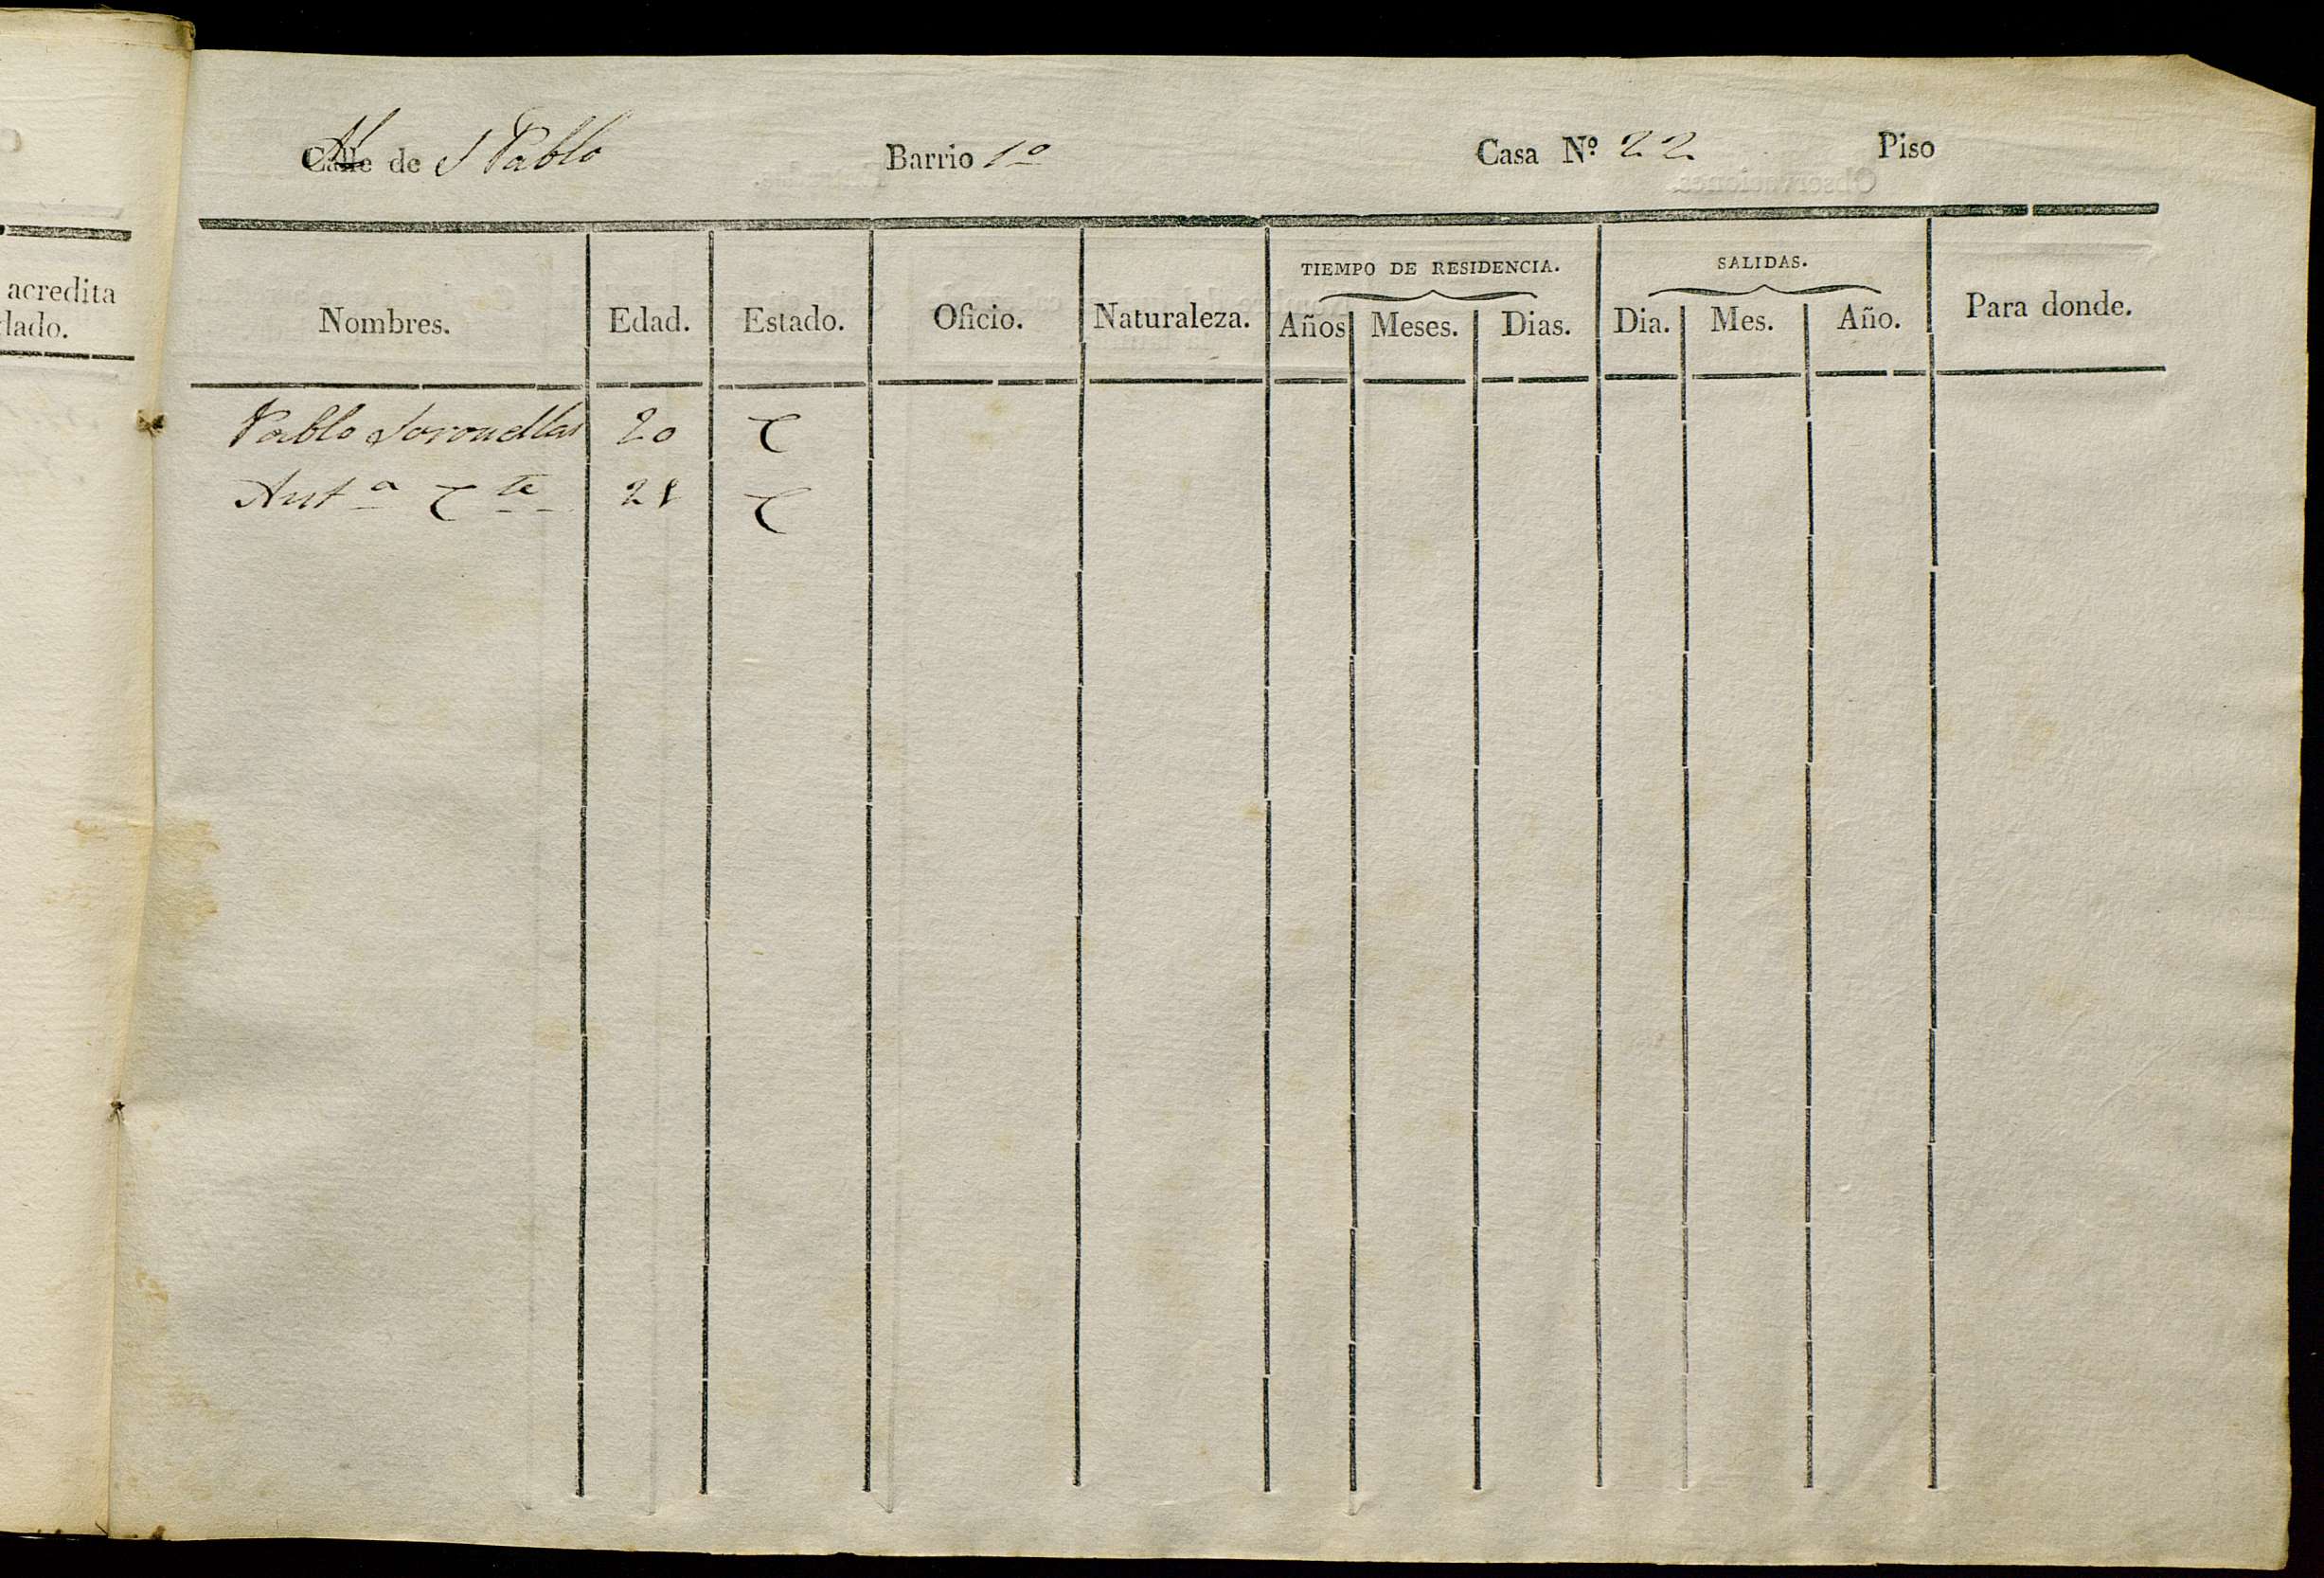 acredita
lado.
Calle de S Pablo Barrio 1º Casa Nº 22 Piso
TIEMPO DE RESIDENCIA. SALIDAS.
Nombres. Edad. Estado. Oficio. Naturaleza. Años Meses. Dias. Dia. Mes. Año. Para donde.
Pablo Soronellas 20 C
Antª C te 28 C